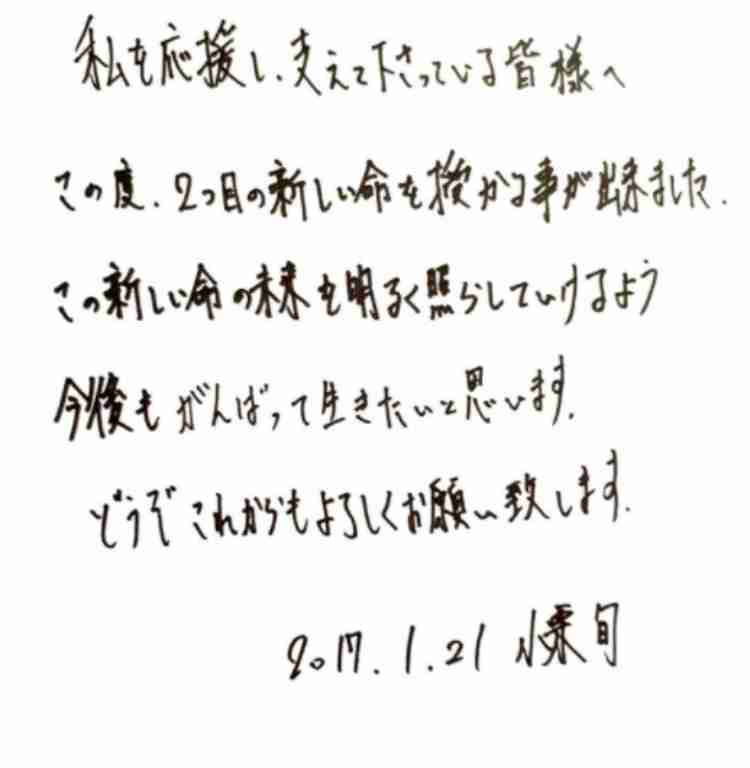 私を応援し、支えて下さっている皆様へ
この度、2つ目の新しい命を授かる事が出来ました.
この新しい命の未来を明るく照らしていけるよう
今後もがんばって生きたいと思います.
どうぞこれからもよろしくお願い致します.
2017.1.21 小栗旬